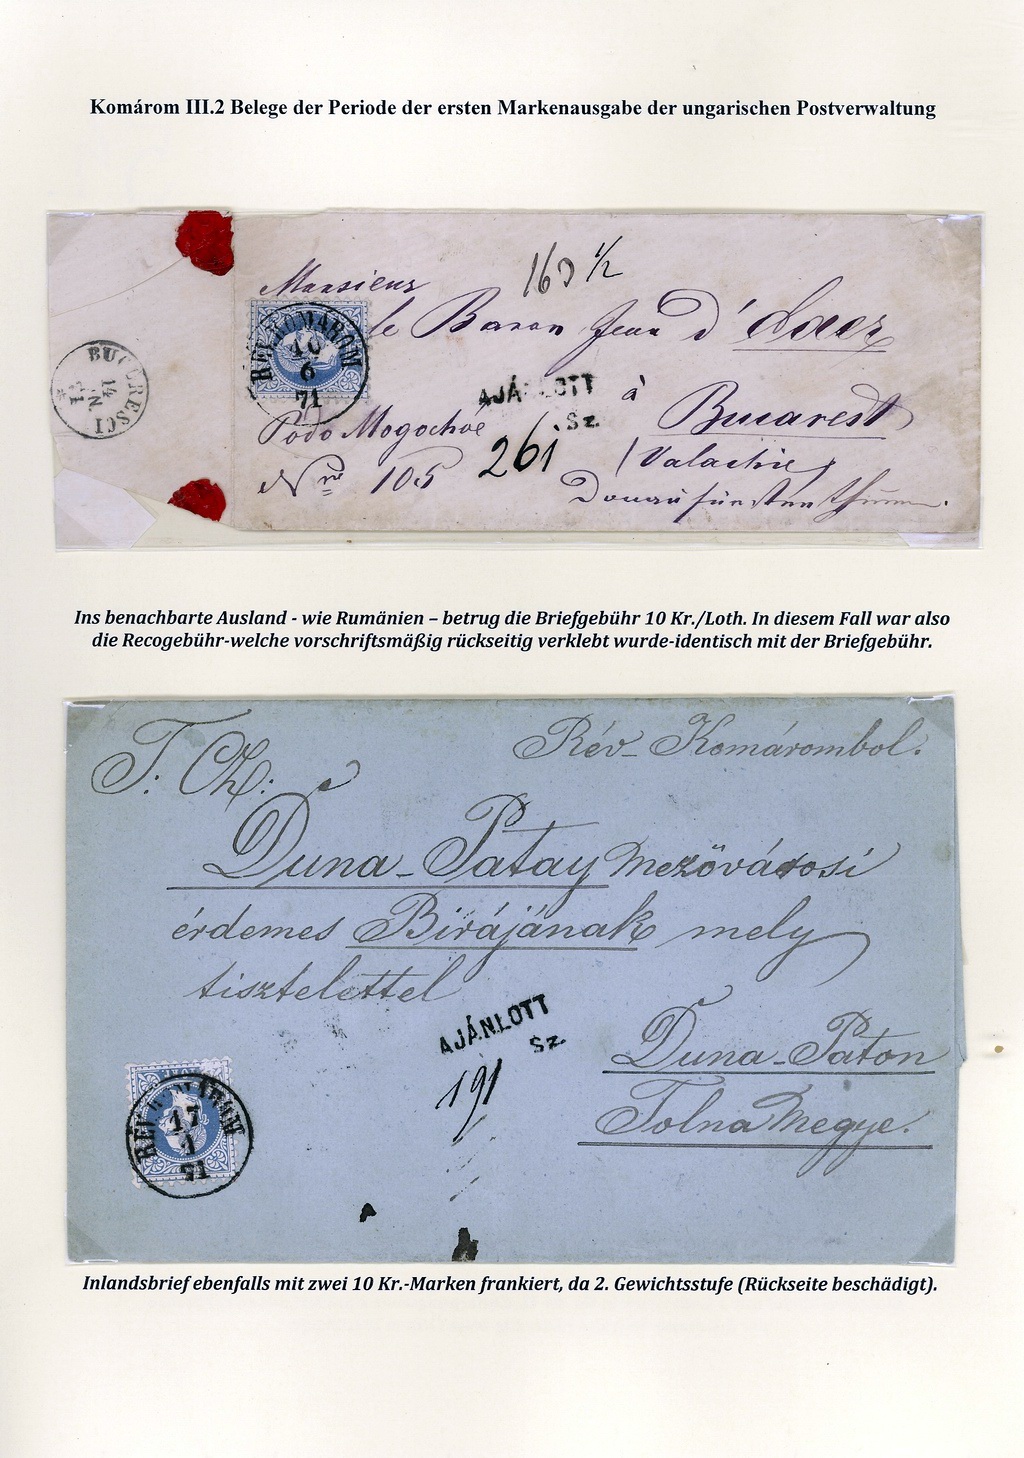 Komárom III.2 Belege der Periode der ersten Markenausgabe der ungarischen Postverwaltung
163 1/2
Monsieur
le Baron Jean d'
REV-KOMÁROM
10
6
71
BUCURESCI
14
AJÁNLOTT
Sz.
261
à
Bucarest
Podo Mogochoé
(Valachie)
Nro 105
Donaufürstenthum.
Ins benachbarte Ausland - wie Rumänien – betrug die Briefgebühr 10 Kr./Loth. In diesem Fall war also
die Recogebühr-welche vorschriftsmäßig rückseitig verklebt wurde-identisch mit der Briefgebühr.
Rév-Komárombol.
T. Cz:
Duna-Patay Mezővárosi
érdemes Birájának mely
tisztelettel
AJÁNLOTT
Sz.
191
Duna-Paton
Tolna Megye.
REV-KOMÁROM
17
71
Inlandsbrief ebenfalls mit zwei 10 Kr.-Marken frankiert, da 2. Gewichtsstufe (Rückseite beschädigt).